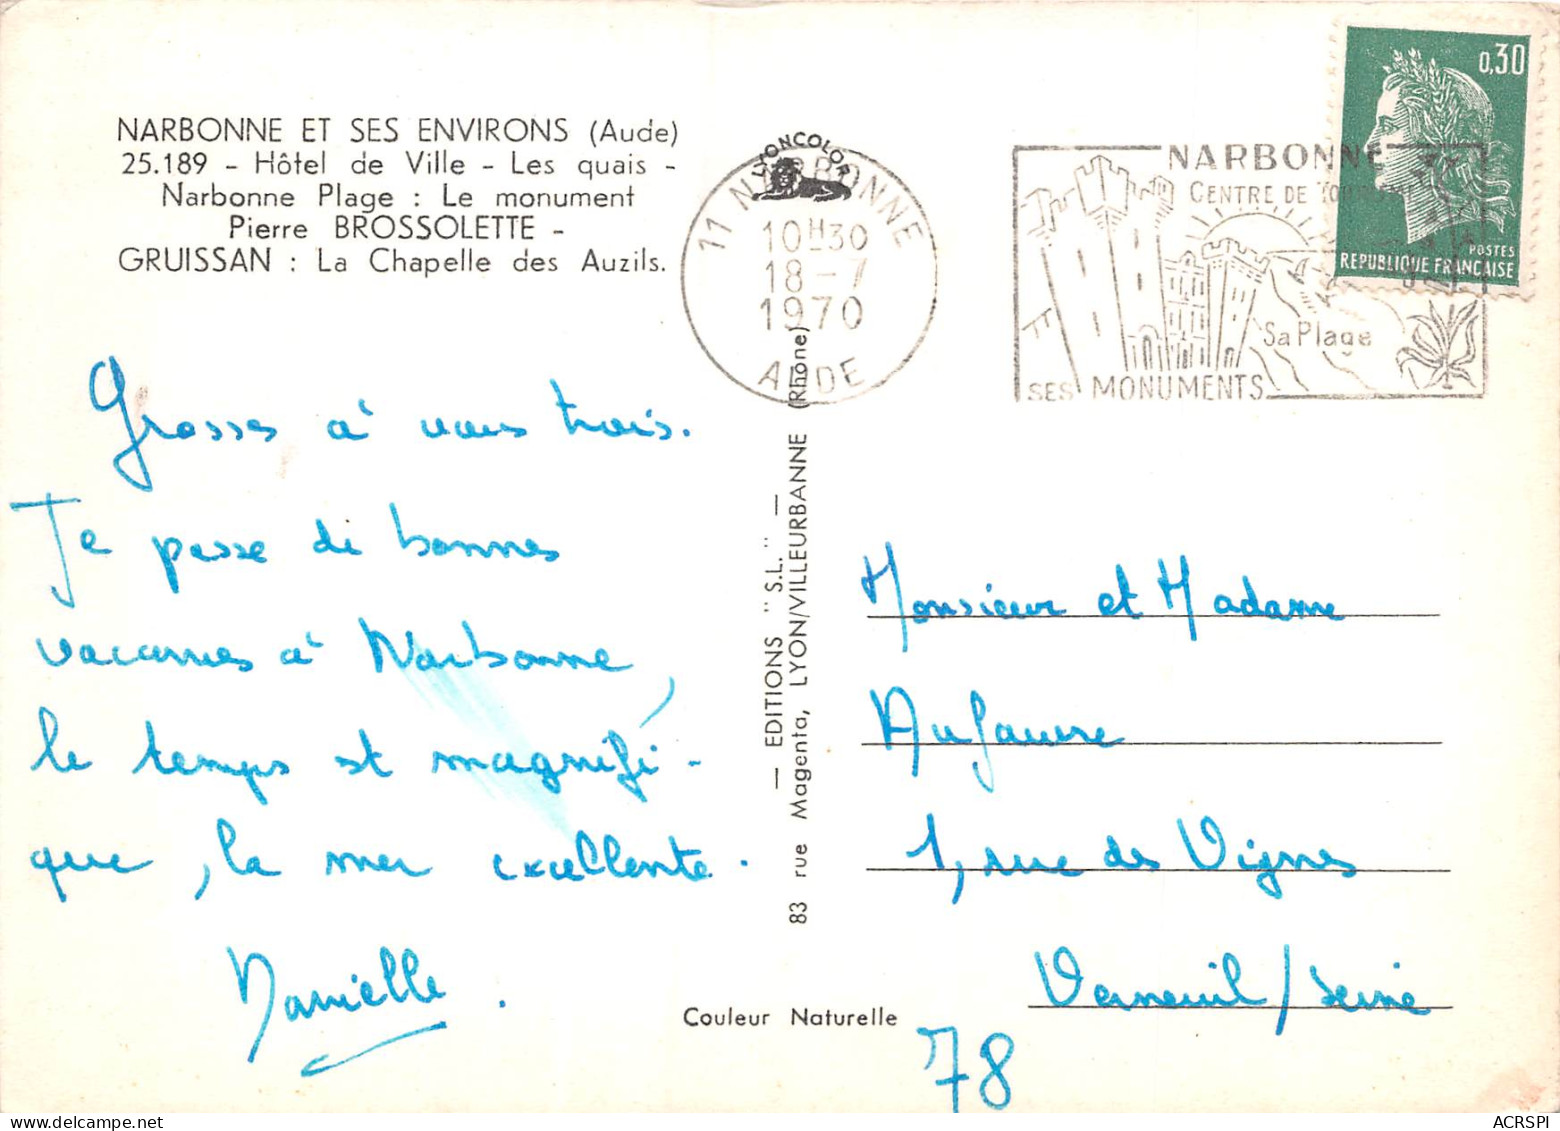 NARBONNE ET SES ENVIRONS (Aude)
25.189 - Hôtel de Ville - Les quais -
Narbonne Plage : Le monument
Pierre BROSSOLETTE -
GRUISSAN : La Chapelle des Auzils.
LYONCOLOR
11 NARBONNE
10H30
18-7
1970
AUDE
NARBONNE
CENTRE DE TOURISME
Sa Plage
SES MONUMENTS
0,30
POSTES
REPUBLIQUE FRANÇAISE
Grosses à vous trois.
Je passe de bonnes
vacannes à Narbonne,
le temps est magnifi-
que, la mer excellente.
Danielle.
— EDITIONS "S.L." —
83 rue Magenta, LYON/VILLEURBANNE (Rhône)
Couleur Naturelle
Monsieur et Madame
Aufauvre
1, rue des Vignes
Verneuil/Seine
78
ACRSPI